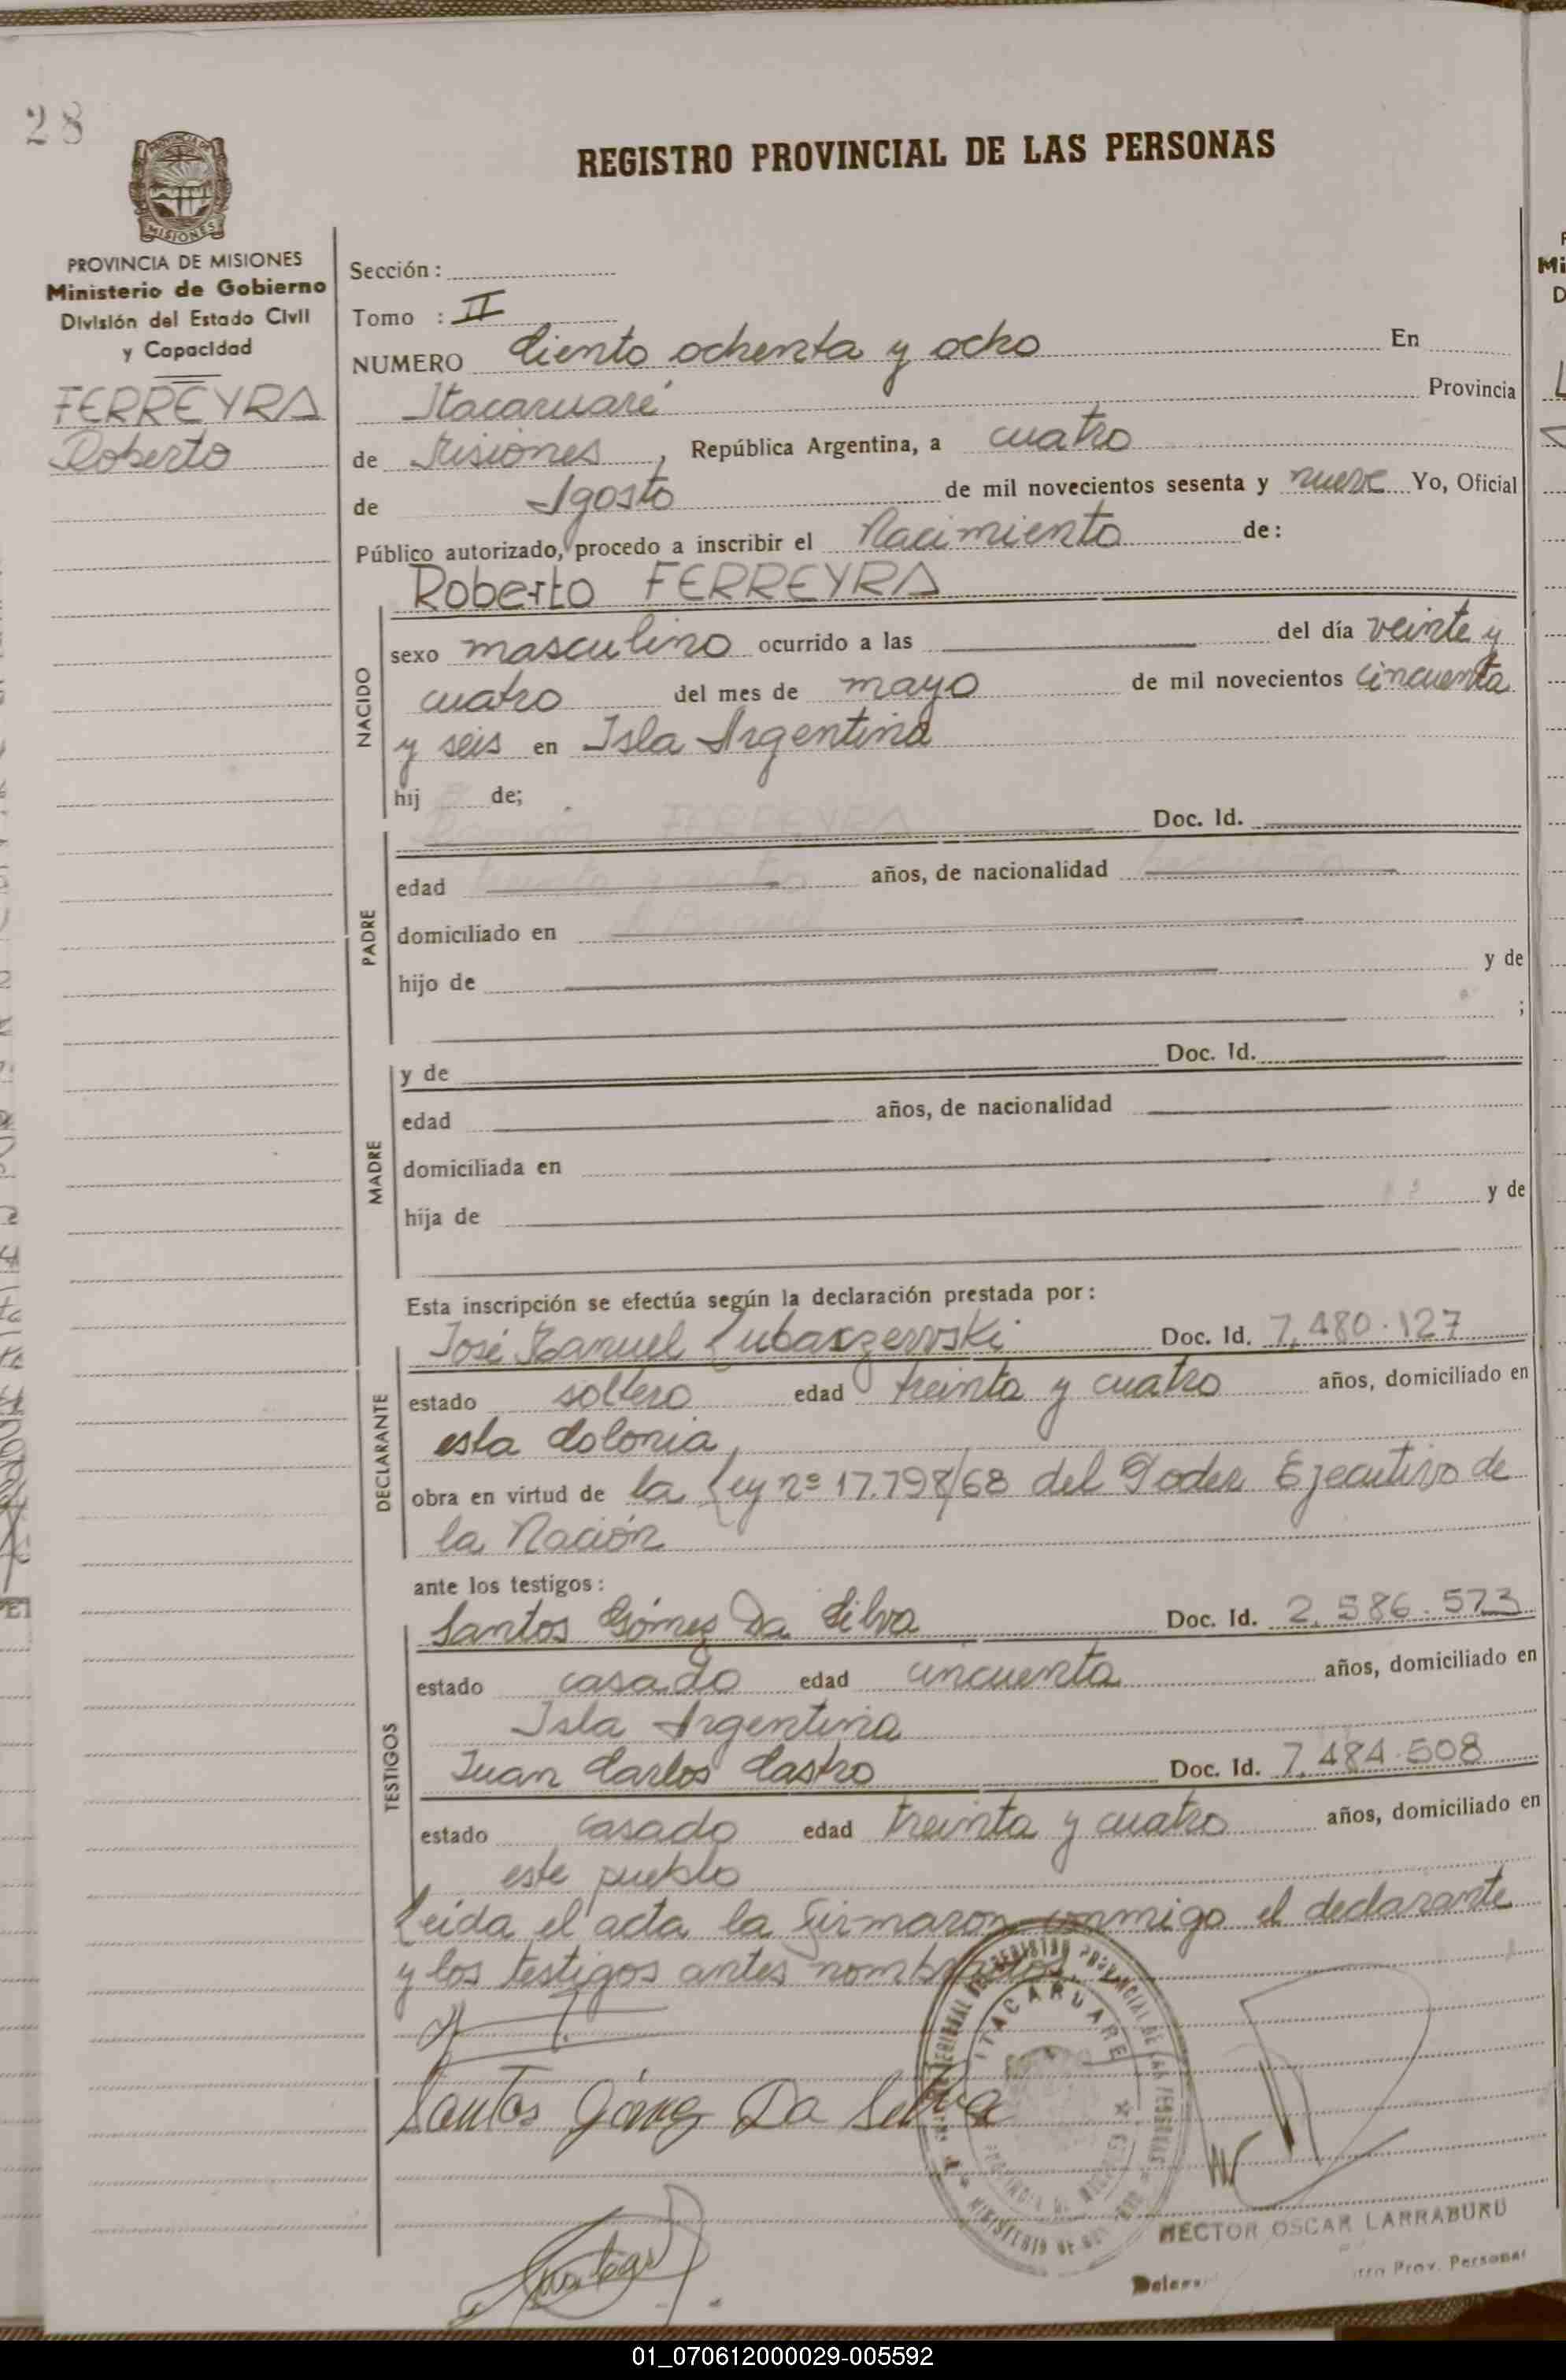 28
REGISTRO PROVINCIAL DE LAS PERSONAS
MISIONES
PROVINCIA DE MISIONES
Ministerio de Gobierno
División del Estado Civil
y Capacidad
FERREYRA
Roberto
Sección :
Tomo : II
NUMERO Ciento ochenta y ocho En
Itacaruaré Provincia
de Misiones, República Argentina, a cuatro
de Agosto de mil novecientos sesenta y nueve Yo, Oficial
Público autorizado, procedo a inscribir el Nacimiento de:
Roberto FERREYRA
NACIDO
sexo masculino ocurrido a las del día veinte y
cuatro del mes de mayo de mil novecientos cincuenta
y seis en Isla Argentina
hij de;
PADRE
FERREYRA Doc. Id.
edad años, de nacionalidad
domiciliado en
hijo de y de
;
MADRE
y de Doc. Id.
edad años, de nacionalidad
domiciliada en
hija de y de
Esta inscripción se efectúa según la declaración prestada por:
DECLARANTE
José Manuel Lubaszerwski Doc. Id. 7.480.127
estado soltero edad treinta y cuatro años, domiciliado en
esta Colonia,
obra en virtud de la Ley nº 17.798/68 del Poder Ejecutivo de
la Nación
ante los testigos:
TESTIGOS
Santos Gómez Da Silva Doc. Id. 2.586.573
estado casado edad cincuenta años, domiciliado en
Isla Argentina
Juan Carlos Castro Doc. Id. 7.484.508
estado casado edad treinta y cuatro años, domiciliado en
este pueblo
Leida el acta la firmaron conmigo el declarante
y los testigos antes nombrados.
Santos Gómez Da Silva
ITACARUARE
HECTOR OSCAR LARRABURU
Prov. Personas
01_070612000029-005592